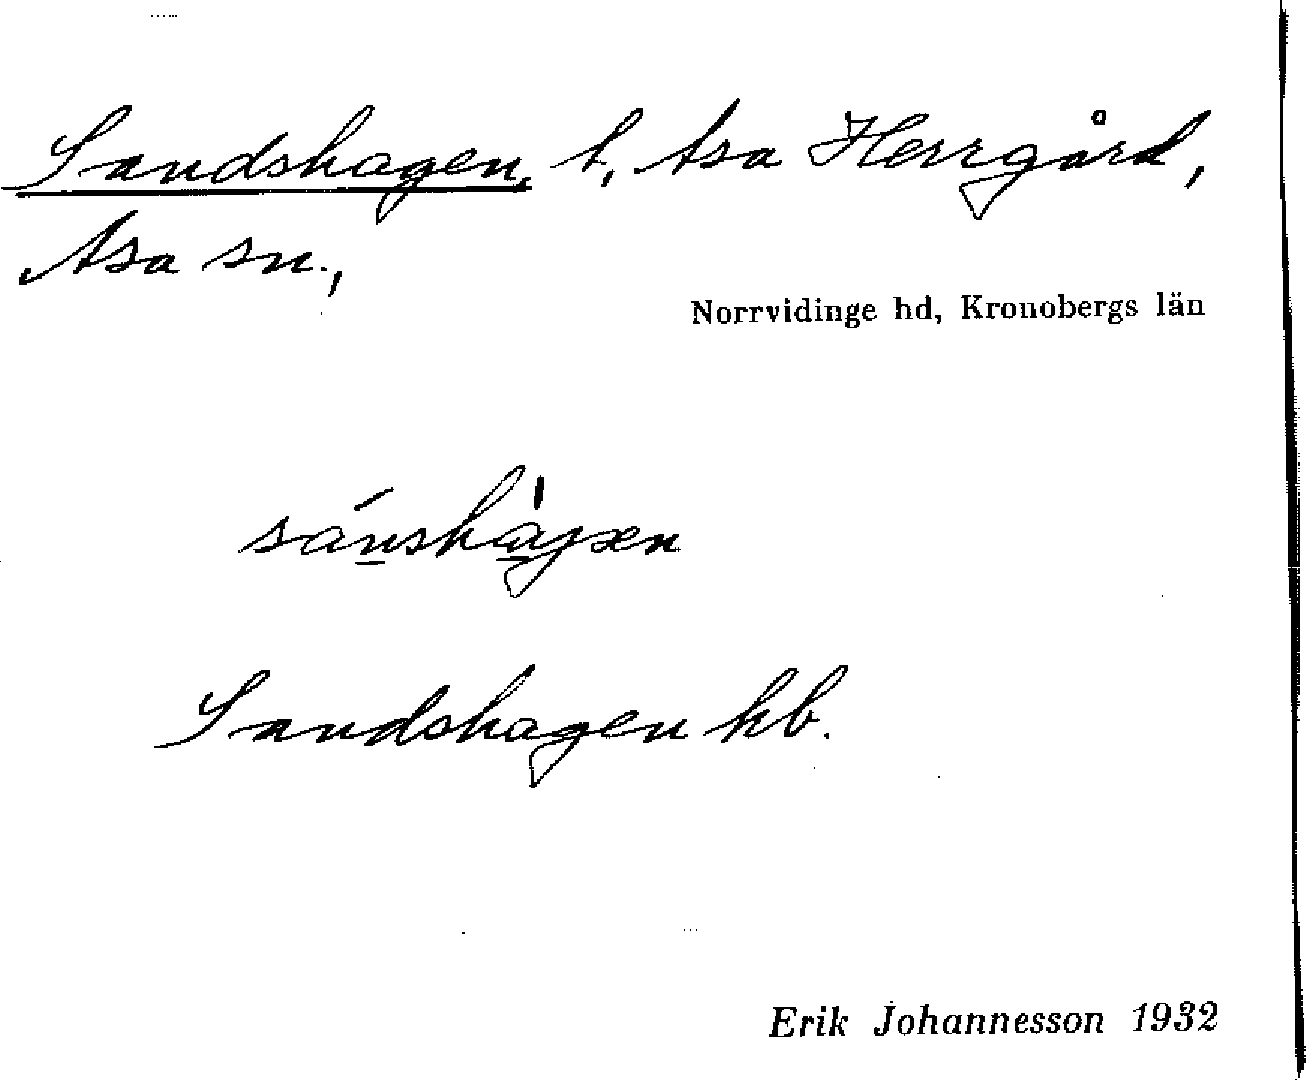 Sandshagen, t, Asa Herrgård,
Asa sn.,
Norrvidinge hd, Kronobergs län
Sandshagen kb.
Erik Johannesson 1932